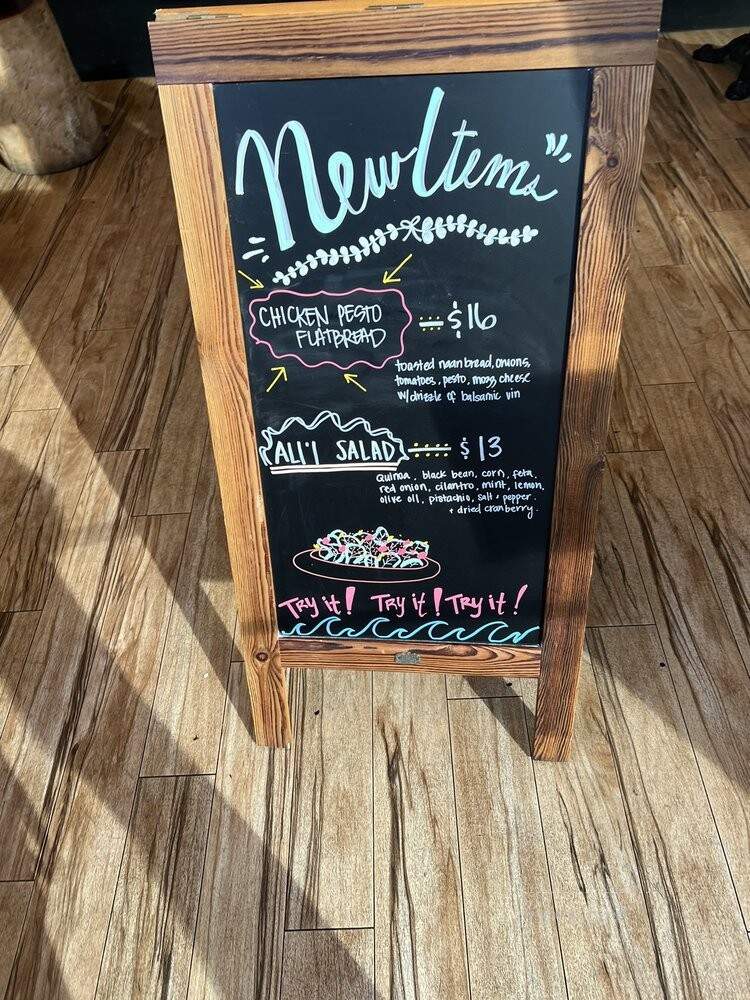 New Items
CHICKEN PESTO
FLATBREAD
$16
toasted naan bread, onions,
tomatoes, pesto, mozz, cheese
w/drizzle of balsamic vin
ALI'I SALAD
$13
Quinoa, black bean, corn, feta,
red onion, cilantro, mint, lemon,
olive oil, pistachio, salt + pepper.
+ dried cranberry.
Try it! Try it! Try it!